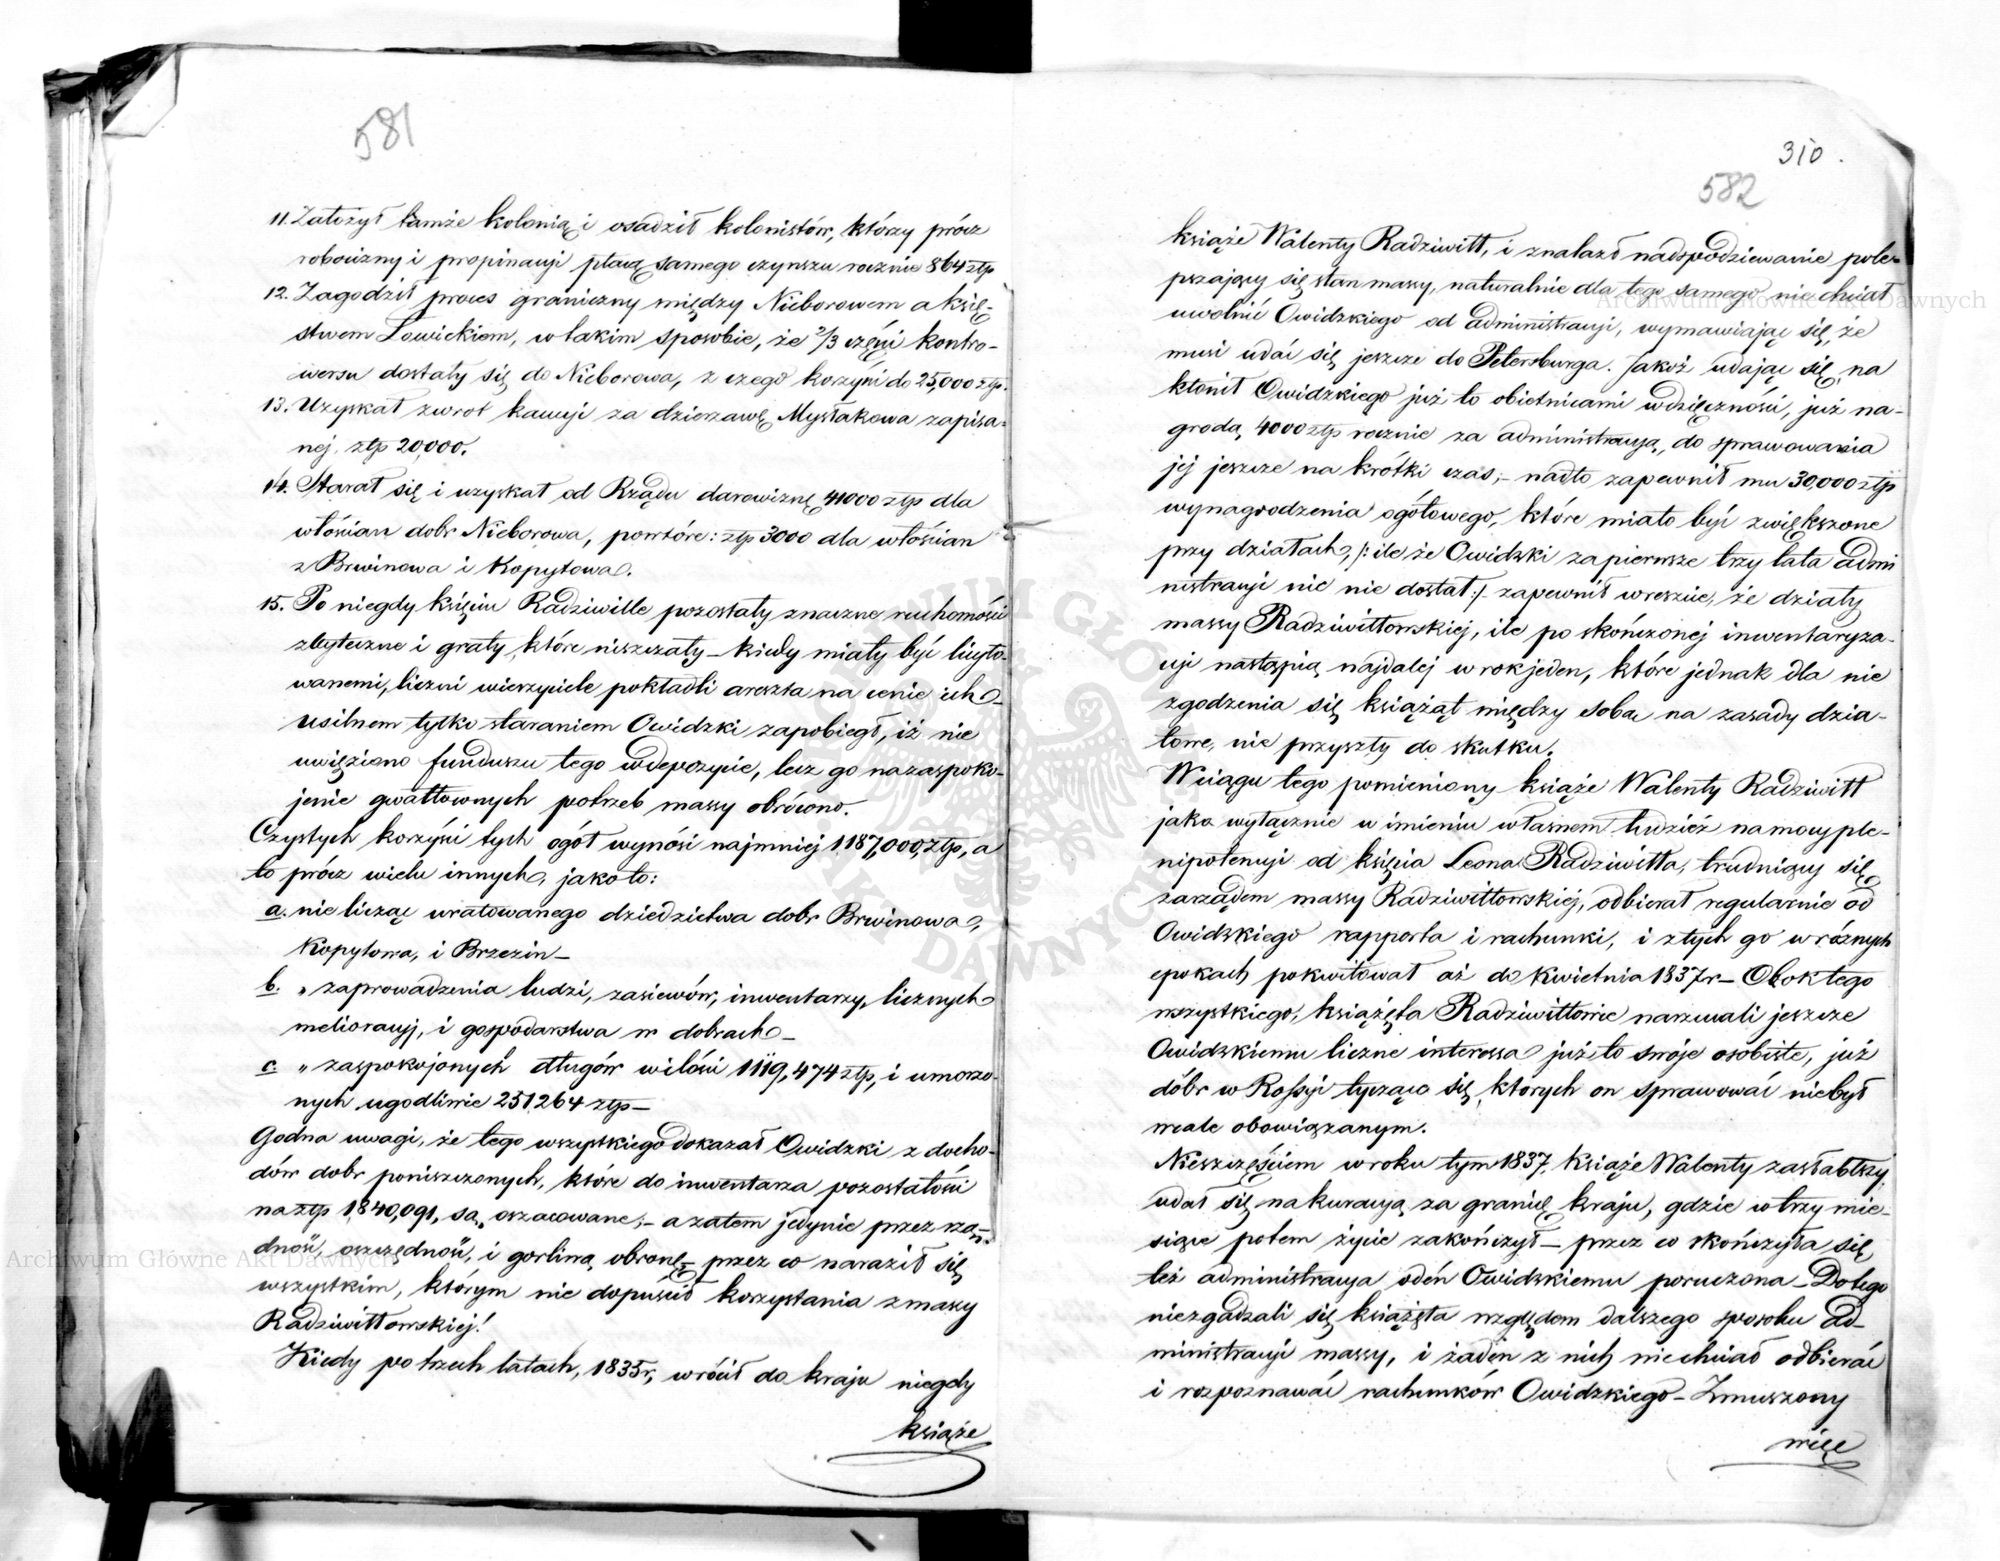 581
11. Założył tamże kolonią i osadził kolonistów, którzy prócz
robocizny i propinacyi płacą samego czynszu rocznie 864 złp
12. Zagodził proces graniczny między Nieborowem a Księ-
stwem Łowickiem, w takim sposobie, że 2/3 części kontro-
wersu dostały się do Nieborowa, z czego korzyści do 25,000 złp.
13. Uzyskał zwrot kaucyi za dzierzawę Mysłakowa zapisa-
nej, złp 20,000.
14. Starał się i uzyskał od Rządu darowiznę 41000 złp dla
włościan dobr Nieborowa, powtóre: złp 3000 dla włościan
z Brwinowa i Kopytowa.
15. Po niegdy księciu Radziwille pozostały znaczne ruchomości
zbyteczne i graty, które niszczały – kiedy miały być licyto-
wanemi, liczni wierzyciele pokładli areszta na cenie ich –
usilnem tylko staraniem Owidzki zapobiegł, iż nie
uwięziono funduszu tego w depozycie, lecz go na zaspoko-
jenie gwałtownych potrzeb massy obrócono.
Czystych korzyści tych ogół wynosi najmniej 1187,000, złp, a
to prócz wielu innych, jako to:
a. nie licząc uratowanego dziedzictwa dobr Brwinowa,
Kopytowa, i Brzezin –
b. „ zaprowadzenia ludzi, zasiewów, inwentarzy, licznych
melioracyj, i gospodarstwa w dobrach –
c. „ zaspokojonych długów w ilości 1119,474 złp, i umorzo-
nych ugodliwie 251264 złp –
Godna uwagi, że tego wszystkiego dokazał Owidzki z docho-
dów dobr poniszczonych, które do inwentarza pozostałości
na złp 1,840,091, są oszacowane; – a zatem jedynie przez rzą-
dność, oszczędność, i gorliwą obronę – przez co naraził się
wszystkim, którym nie dopuścił korzystania z massy
Radziwiłłowskiej!
Kiedy po trzech latach, 1835 r, wrócił do kraju niegdy
książe
310.
582
książe Walenty Radziwiłł, i znalazł nadspodziewanie pole-
pszający się stan massy, naturalnie dla tego samego nie chciał
uwolnić Owidzkiego od administracyi, wymawiając się, że
musi udać się jeszcze do Petersburga. Jakoż udając się, na
kłonił Owidzkiego już to obietnicami wdzięczności, już na-
grodą 4000 złp rocznie za administracyą, do sprawowania
jej jeszcze na krótki czas; – nadto zapewnił mu 30,000 złp
wynagrodzenia ogółowego, które miało być zwiększone
przy działach, /: ile że Owidzki za pierwsze trzy lata admi
nistracyi nic nie dostał :/ – zapewnił wreszcie, że działy
massy Radziwiłłowskiej, ile po skończonej inwentaryza-
cyi nastąpią najdalej w rok jeden, które jednak dla nie
zgodzenia się książąt między sobą na zasady dzia-
łowe, nie przyszły do skutku.
W ciągu tego pomieniony książe Walenty Radziwiłł
jako wyłącznie w imieniu własnem tudzież na mocy ple-
nipotencyi od księcia Leona Radziwiłła, trudniący się
zarządem massy Radziwiłłowskiej, odbierał regularnie od
Owidzkiego rapporta i rachunki, i z tych go w różnych
epokach pokwitował aż do Kwietnia 1837 r – Obok tego
wszystkiego, książęta Radziwiłłowie narzucali jeszcze
Owidzkiemu liczne interessa już to swoje osobiste, już
dóbr w Rossyi tycząc się, ktorych on sprawować niebył
wcale obowiązanym.
Nieszczęściem w roku tym 1837, książe Walenty zasłabłszy,
udał się na kuracyą za granicę kraju, gdzie w trzy mie-
siące potem życie zakończył – przez co skończyła się
też administracya odeń Owidzkiemu poruczona – Do tego
niezgadzali się książęta względem dalszego sposobu ad-
ministracyi massy, i żaden z nich nie chciał odbierać
i rozpoznawać rachunków Owidzkiego – Zmuszony
więc
Archiwum Główne Akt Dawnych
Archiwum Główne Akt Dawnych
ARCHIWUM GŁÓWNE AKT DAWNYCH